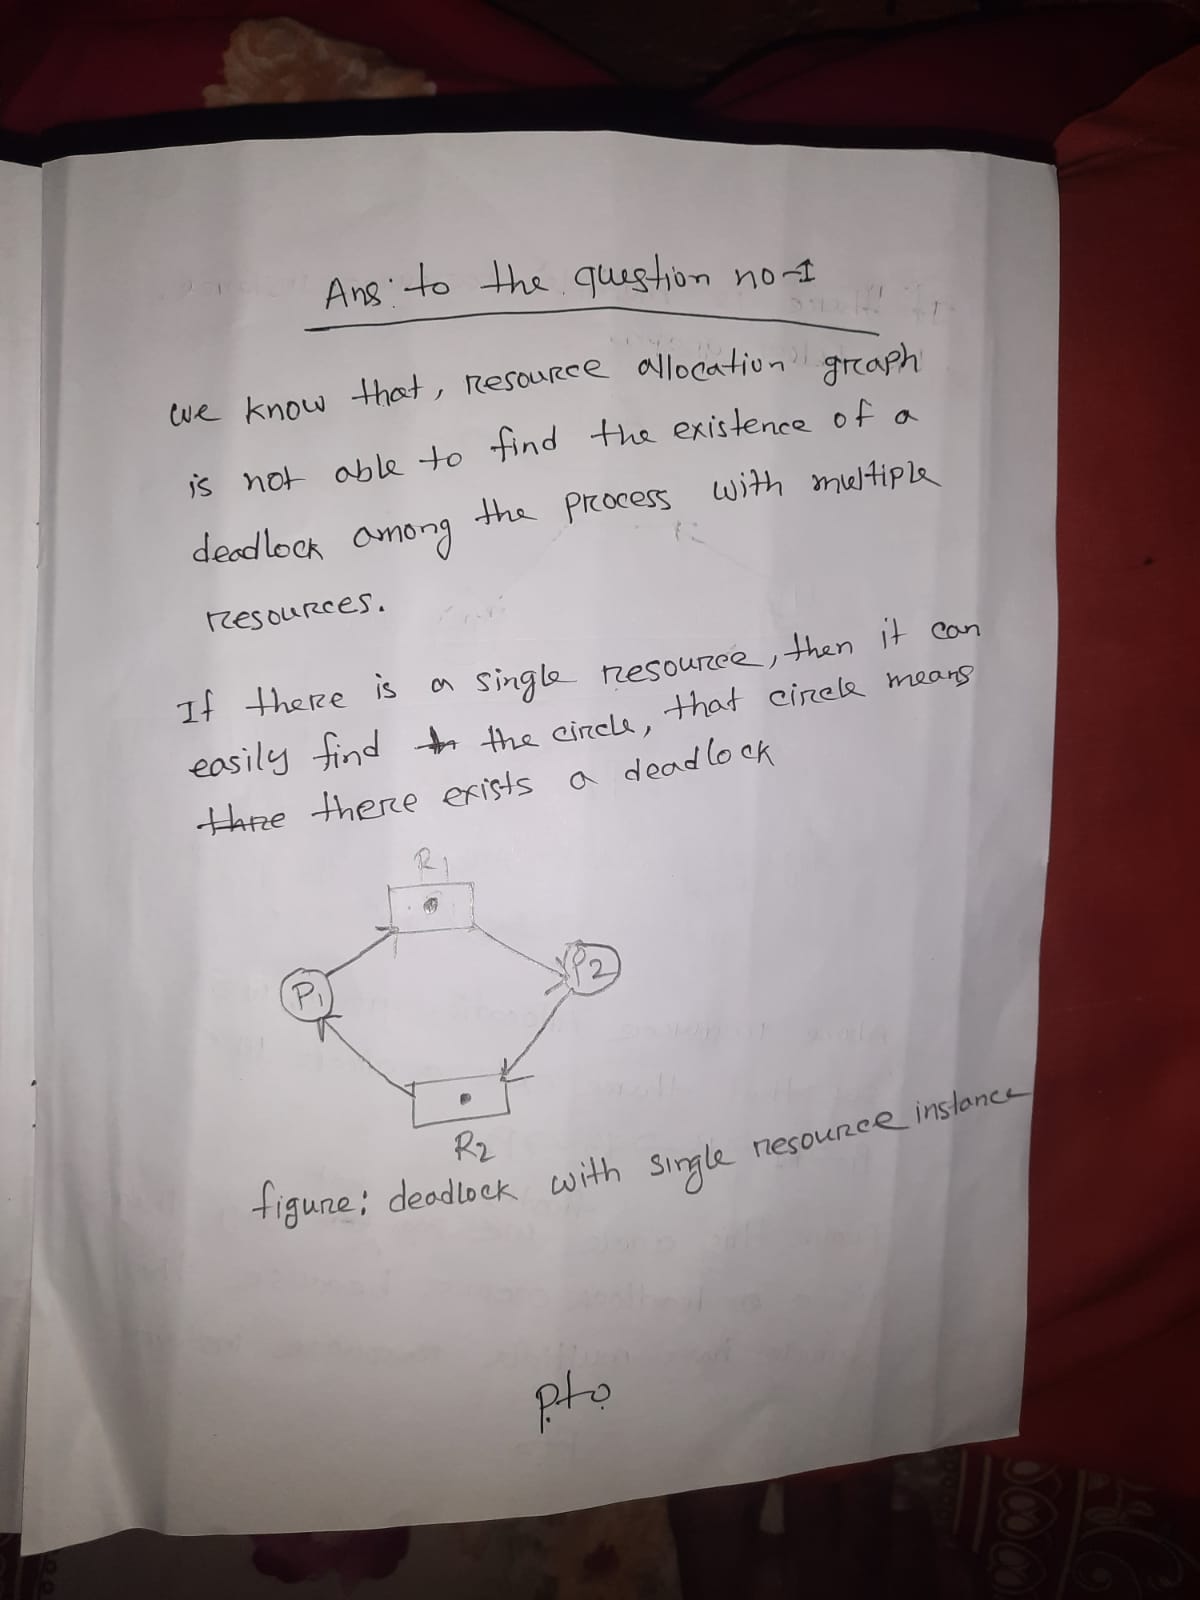 Ans: to the question no-1
we know that, resource allocation graph
is not able to find the existence of a
deadlock among the process with multiple
resources.
If there is a single resource, then it can
easily find the circle, that circle means
there exists a deadlock
R1
P1
P2
R2
figure: deadlock with single resource instance
p.t.o